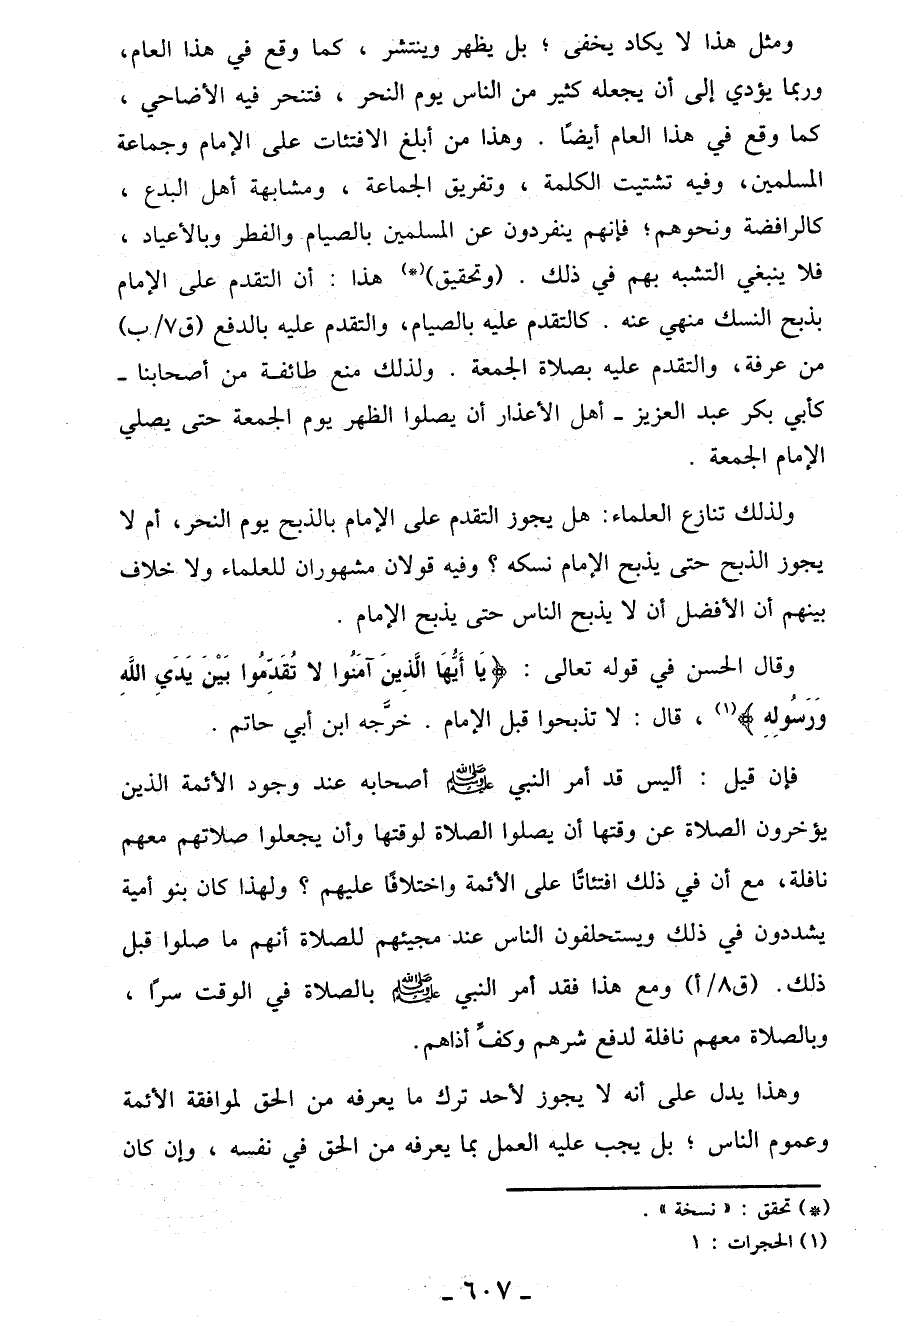 ومثل هذا لا يكاد يخفى ؛ بل يظهر وينتشر ، كما وقع في هذا العام،
وربما يؤدي إلى أن يجعله كثير من الناس يوم النحر ، فتنحر فيه الأضاحي ،
كما وقع في هذا العام أيضًا . وهذا من أبلغ الافتئات على الإمام وجماعة
المسلمين، وفيه تشتيت الكلمة ، وتفريق الجماعة ، ومشابهة أهل البدع ،
كالرافضة ونحوهم؛ فإنهم ينفردون عن المسلمين بالصيام والفطر وبالأعياد ،
فلا ينبغي التشبه بهم في ذلك . (وتحقيق)(*) هذا : أن التقدم على الإمام
بذبح النسك منهي عنه . كالتقدم عليه بالصيام، والتقدم عليه بالدفع (ق٧/ب)
من عرفة، والتقدم عليه بصلاة الجمعة . ولذلك منع طائفة من أصحابنا ـ
كأبي بكر عبد العزيز ـ أهل الأعذار أن يصلوا الظهر يوم الجمعة حتى يصلي
الإمام الجمعة .
ولذلك تنازع العلماء: هل يجوز التقدم على الإمام بالذبح يوم النحر، أم لا
يجوز الذبح حتى يذبح الإمام نسكه ؟ وفيه قولان مشهوران للعلماء ولا خلاف
بينهم أن الأفضل أن لا يذبح الناس حتى يذبح الإمام .
وقال الحسن في قوله تعالى : ﴿يَا أَيُّهَا الَّذِينَ آمَنُوا لا تُقَدِّمُوا بَيْنَ يَدَيِ اللَّهِ
وَرَسُولِهِ﴾(١) ، قال : لا تذبحوا قبل الإمام . خرَّجه ابن أبي حاتم .
فإن قيل : أليس قد أمر النبي ﷺ أصحابه عند وجود الأئمة الذين
يؤخرون الصلاة عن وقتها أن يصلوا الصلاة لوقتها وأن يجعلوا صلاتهم معهم
نافلة، مع أن في ذلك افتئاتًا على الأئمة واختلافًا عليهم ؟ ولهذا كان بنو أمية
يشددون في ذلك ويستحلفون الناس عند مجيئهم للصلاة أنهم ما صلوا قبل
ذلك. (ق٨/أ) ومع هذا فقد أمر النبي ﷺ بالصلاة في الوقت سرًا ،
وبالصلاة معهم نافلة لدفع شرهم وكفِّ أذاهم.
وهذا يدل على أنه لا يجوز لأحد ترك ما يعرفه من الحق لموافقة الأئمة
وعموم الناس ؛ بل يجب عليه العمل بما يعرفه من الحق في نفسه ، وإن كان
(*) تحقق : « نسخة » .
(١) الحجرات : ١
ـ ٦٠٧ ـ